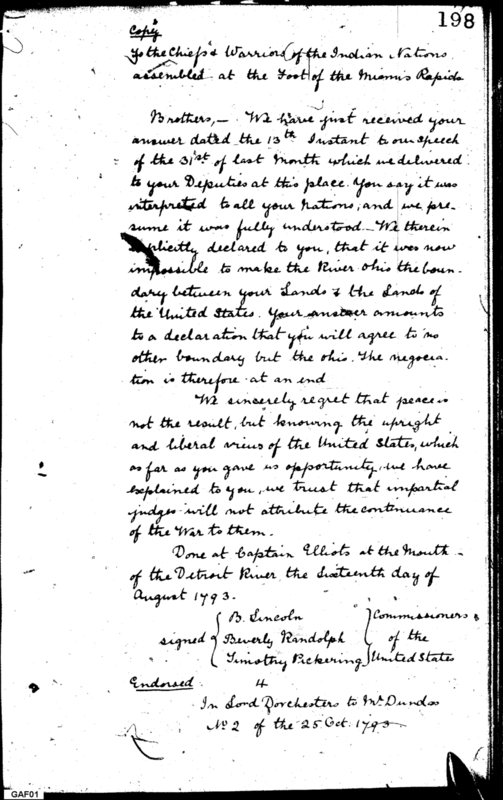 198
Copy
To the Chiefs & Warriors of the Indian Nations
assembled at the Foot of the Miamis Rapids
Brothers,— We have just received your
answer dated the 13th Instant to our speech
of the 31st of last Month which we delivered
to your Deputies at this place. You say it was
interpreted to all your Nations, and we pre-
sume it was fully understood— We therein
explicitly declared to you, that it was now
impossible to make the River Ohio the boun-
dary between your Lands & the Lands of
the United States. Your answer amounts
to a declaration that you will agree to no
other boundary but the ohio. The negocia-
tion is therefore at an end
We sincerely regret that peace is
not the result, but knowing the upright
and liberal views of the United States, which
as far as you gave us opportunity, we have
explained to you, we trust that impartial
judges will not attribute the continuance
of the War to them.
Done at Captain Elliots at the Mouth
of the Detroit River, the Sixteenth day of
August 1793.
B. Lincoln Commissioners
signed Beverly Randolph of the
Timothy Pickering United States
Endorsed 4
In Lord Dorchesters to Mr Dundas
No 2 of the 25 Oct. 1793
GAF01